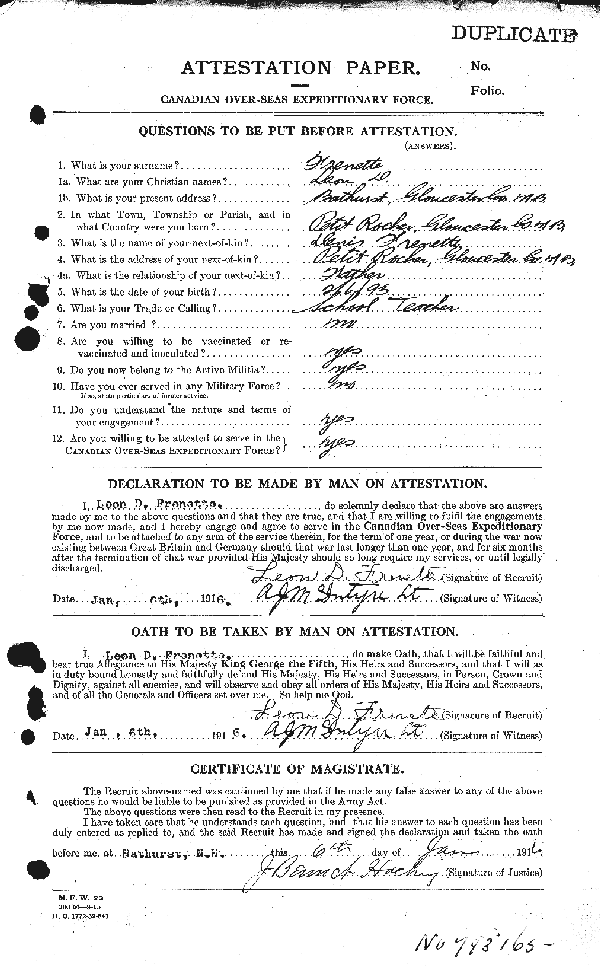 DUPLICATE
ATTESTATION PAPER.
No.
Folio.
CANADIAN OVER-SEAS EXPEDITIONARY FORCE.
QUESTIONS TO BE PUT BEFORE ATTESTATION.
(ANSWERS).
1. What is your surname? Frenette
1a. What are your Christian names? Leon D.
1b. What is your present address? Bathurst, Gloucester Co. N.B.
2. In what Town, Township or Parish, and in
what Country were you born? Petit Rocher, Gloucester Co. N.B.
3. What is the name of your next-of-kin? Denis Frenette
4. What is the address of your next-of-kin? Petit Rocher, Gloucester Co. N.B.
4a. What is the relationship of your next-of-kin? Father
5. What is the date of your birth?
6. What is your Trade or Calling? School Teacher
7. Are you married? no
8. Are you willing to be vaccinated or re-
vaccinated and inoculated? yes
9. Do you now belong to the Active Militia? yes
10. Have you ever served in any Military Force? no
If so, state particulars of former service.
11. Do you understand the nature and terms of
your engagement? yes
12. Are you willing to be attested to serve in the
CANADIAN OVER-SEAS EXPEDITIONARY FORCE? yes
DECLARATION TO BE MADE BY MAN ON ATTESTATION.
I, Leon D. Frenette, do solemnly declare that the above are answers
made by me to the above questions and that they are true, and that I am willing to fulfil the engagements
by me now made, and I hereby engage and agree to serve in the Canadian Over-Seas Expeditionary
Force, and to be attached to any arm of the service therein, for the term of one year, or during the war now
existing between Great Britain and Germany should that war last longer than one year, and for six months
after the termination of that war provided His Majesty should so long require my services, or until legally
discharged.
Leon D. Frenette (Signature of Recruit)
Date Jan. 6th. 1916. A J McIntyre Lt (Signature of Witness)
OATH TO BE TAKEN BY MAN ON ATTESTATION.
I, Leon D. Frenette, do make Oath, that I will be faithful and
bear true Allegiance to His Majesty King George the Fifth, His Heirs and Successors, and that I will as
in duty bound honestly and faithfully defend His Majesty, His Heirs and Successors, in Person, Crown and
Dignity, against all enemies, and will observe and obey all orders of His Majesty, His Heirs and Successors,
and of all the Generals and Officers set over me. So help me God.
Leon D. Frenette (Signature of Recruit)
Date Jan. 6th. 1916. A J McIntyre Lt (Signature of Witness)
CERTIFICATE OF MAGISTRATE.
The Recruit above-named was cautioned by me that if he made any false answer to any of the above
questions he would be liable to be punished as provided in the Army Act.
The above questions were then read to the Recruit in my presence.
I have taken care that he understands each question, and that his answer to each question has been
duly entered as replied to, and the said Recruit has made and signed the declaration and taken the oath
before me, at Bathurst, N.B. this 6th day of Jan 1916
(Signature of Justice)
M. F. W. 23
H. Q. 1772-39-841